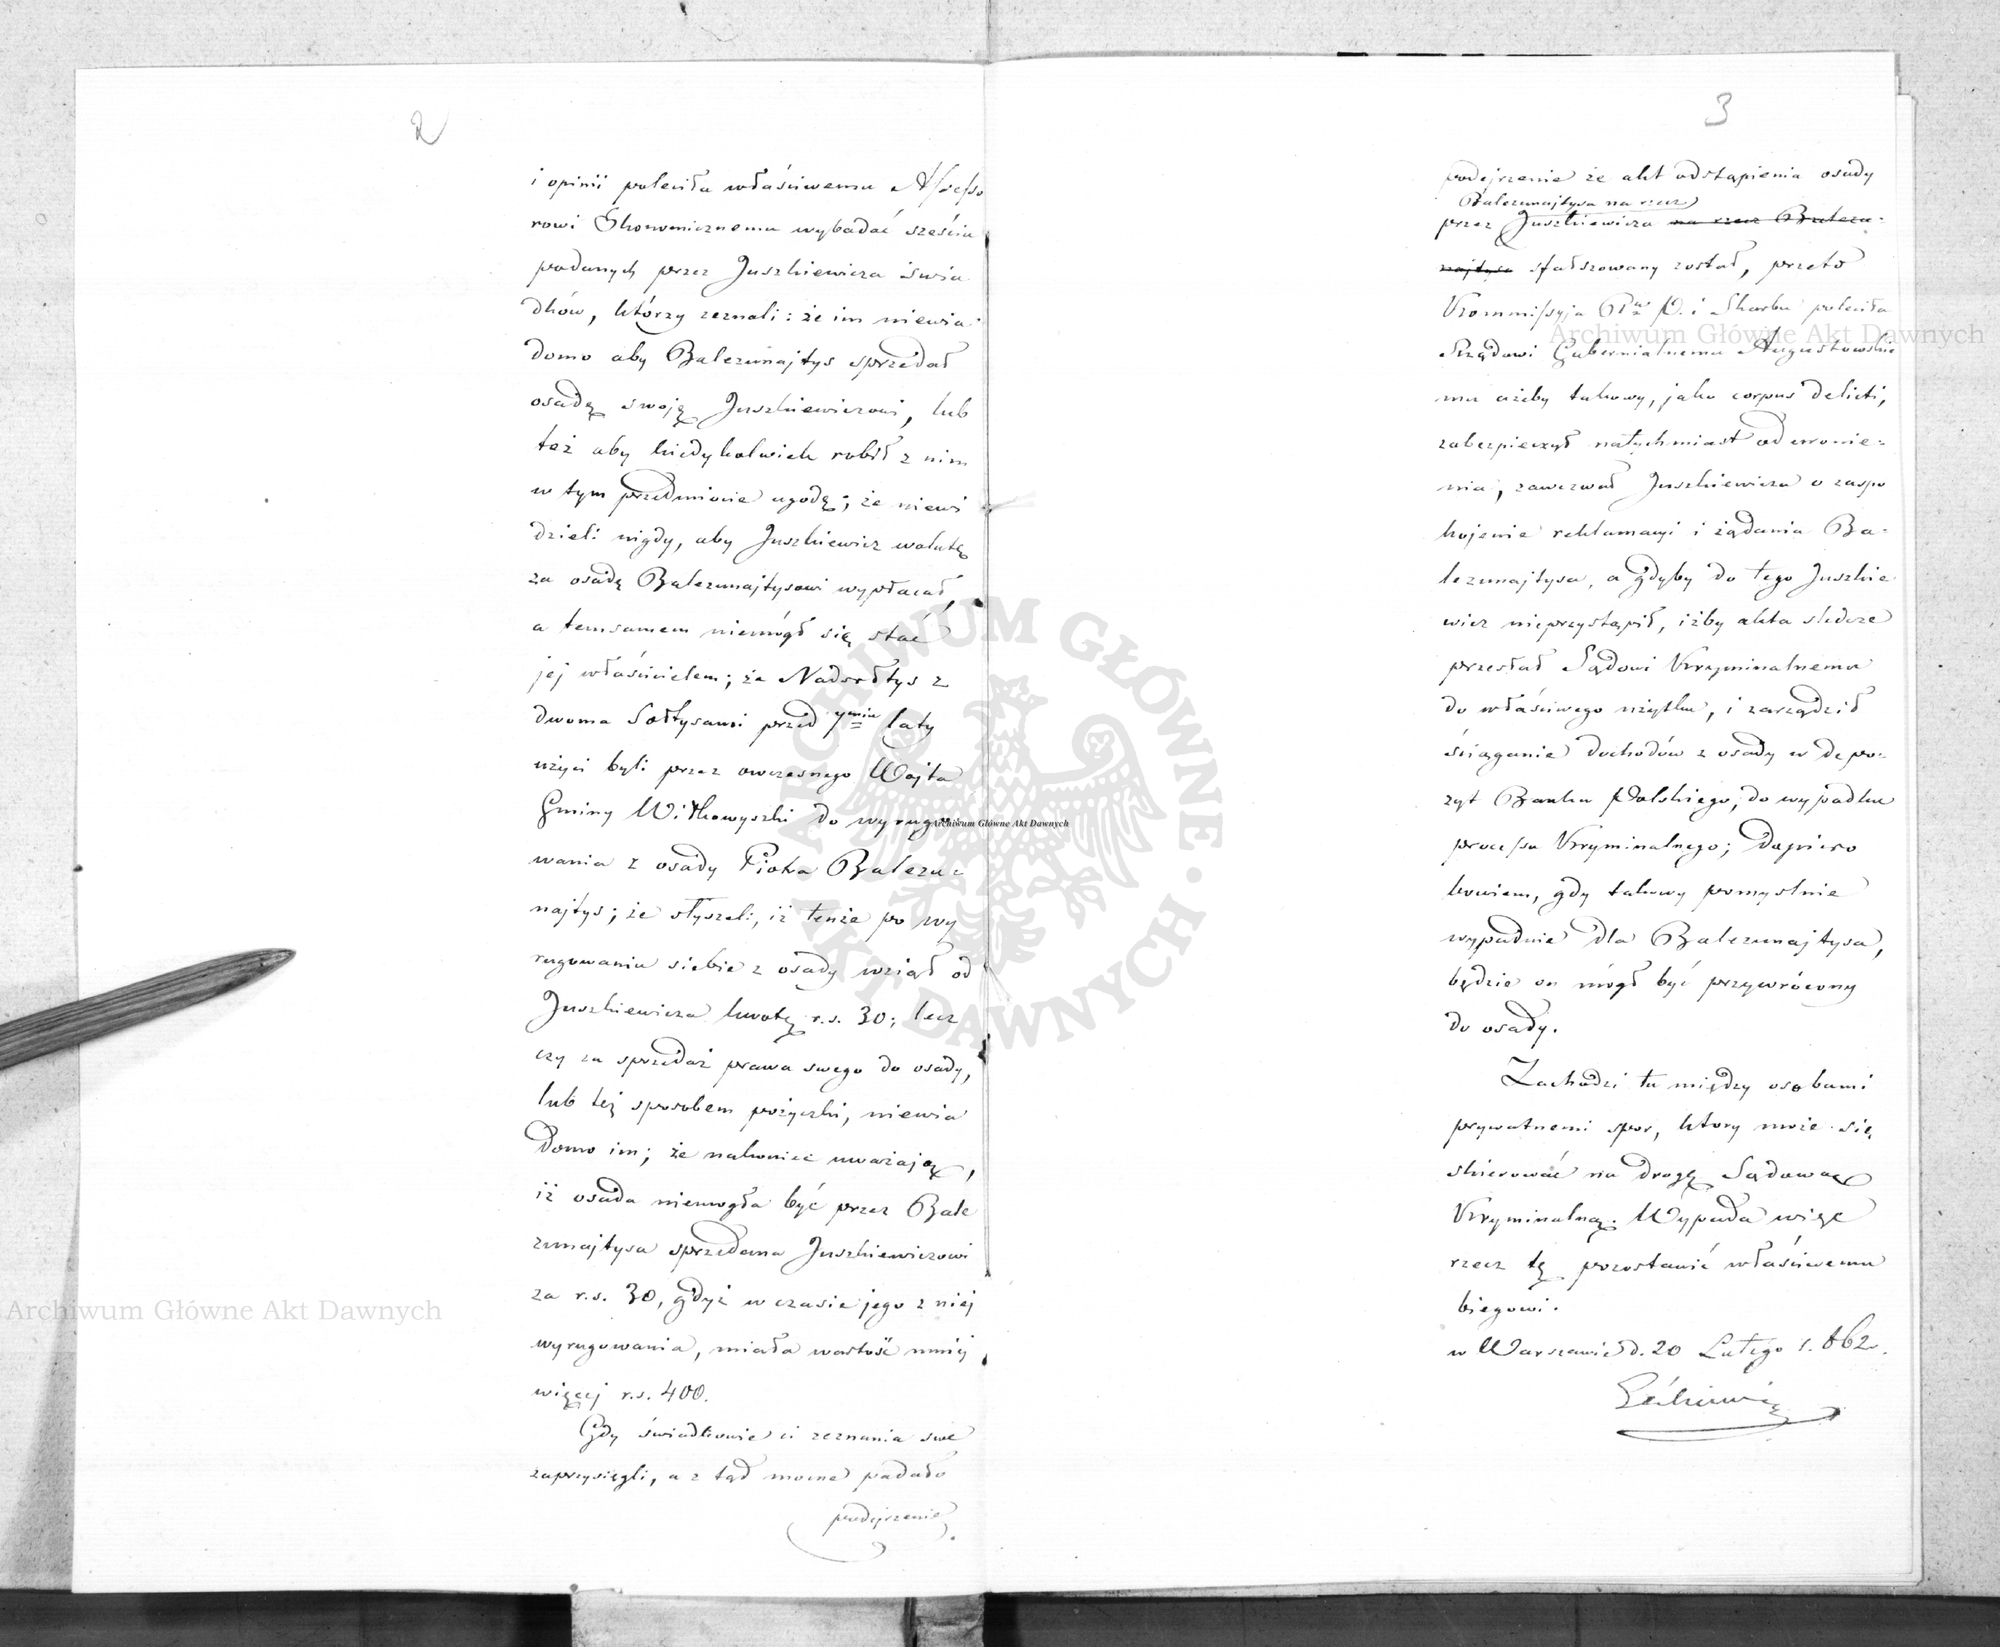 2
i opinii poleciła właściwemu Assesso
rowi Ekonomicznemu wybadać sześciu
podanych przez Juszkiewicza świa
dków, którzy zeznali: że im niewia-
domo aby Balezunajtys sprzedał
osadę swoję Juszkiewiczowi, lub
też aby kiedykolwiek robił z nim
w tym przedmiocie ugodę; że niewi
dzieli nigdy, aby Juszkiewicz walutę
za osadę Balezunajtysowi wypłacał,
a temsamem niemógł się stać
jej właścicielem; że Nadsołtys z
dwoma Sołtysami przed 7miu laty
użyci byli przez owczesnego Wójta
Gminy Wiłkowyszki do wyrugo
wania z osady Piotra Balezu-
najtys; że słyszeli, iż tenże po wy
rugowaniu siebie z osady wziął od
Juszkiewicza kwotę r.s. 30; lecz
czy za sprzedaż prawa swego do osady,
lub też sposobem pożyczki, niewia
domo im; że nakoniec uważają,
iż osada niemogła być przez Bale
zunajtysa sprzedana Juszkiewiczowi
za r.s. 30, gdyż w czasie jego z niej
wyrugowania, miała wartość mniej
więcej r.s. 400.
Gdy świadkowie ci zeznania swe
zaprzysięgli, a z tąd mocne padało
podejrzenie
3
podejrzenie że akt odstąpienia osady
Balezunajtysa na rzecz
przez Juszkiewicza na rzecz Balezu-
najtysa sfałszowany został, przeto
Kommissyja P. i Skarbu poleciła
Rządowi Gubernialnemu Augustowskie
mu ażeby takowy, jako corpus delicti,
zabezpieczył natychmiast od uronie-
nia, zawezwał Juszkiewicza o zaspo
kojenie reklamacyi i żądania Ba-
lezunajtysa, a gdyby do tego Juszkie
wicz nieprzystąpił, iżby akta śledcze
przesłał Sądowi Kryminalnemu
do właściwego użytku, i zarządził
ściąganie dochodów z osady w depo-
zyt Banku Polskiego, do wypadku
processu Kryminalnego; dopiero
bowiem, gdy takowy pomyslnie
wypadnie dla Balezunajtysa,
będzie on mógł być przywrócony
do osady.
Zachodzi tu między osobami
prywatnemi spor, ktory może się
skierować na drogę Sądową
Kryminalną. Wypada więc
rzecz tę pozostawić właściwemu
biegowi.
w Warszawie d. 20 Lutego 1862 r.
Archiwum Główne Akt Dawnych
Archiwum Główne Akt Dawnych
Archiwum Główne Akt Dawnych
ARCHIWUM GŁÓWNE · AKT DAWNYCH ·